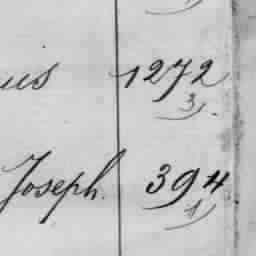 us 1272
3
Joseph 394
1